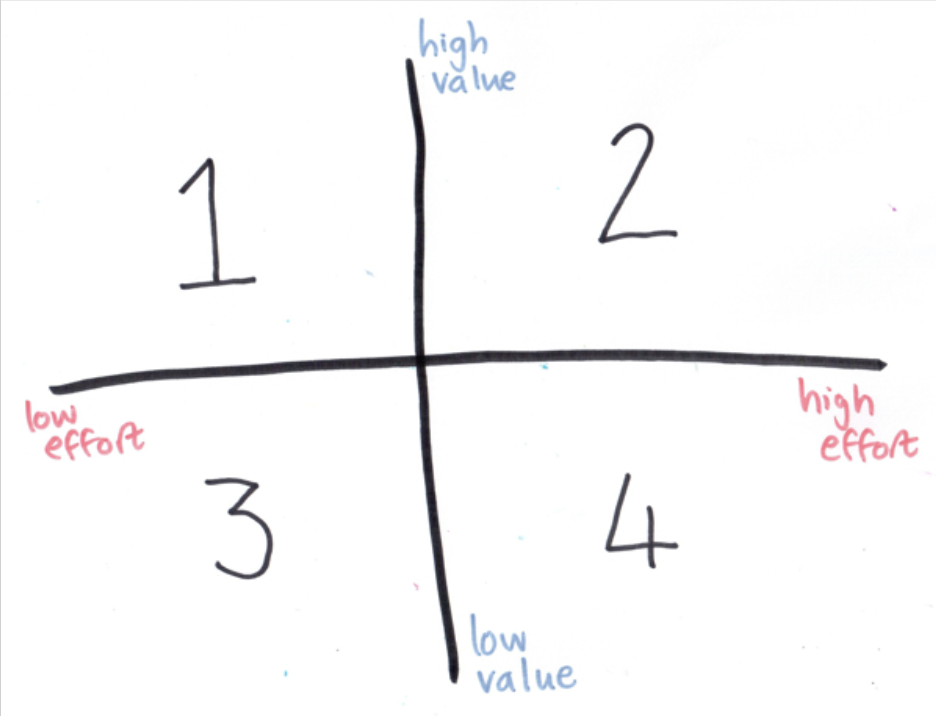 high
value
1
2
low
effort
high
effort
3
4
low
value